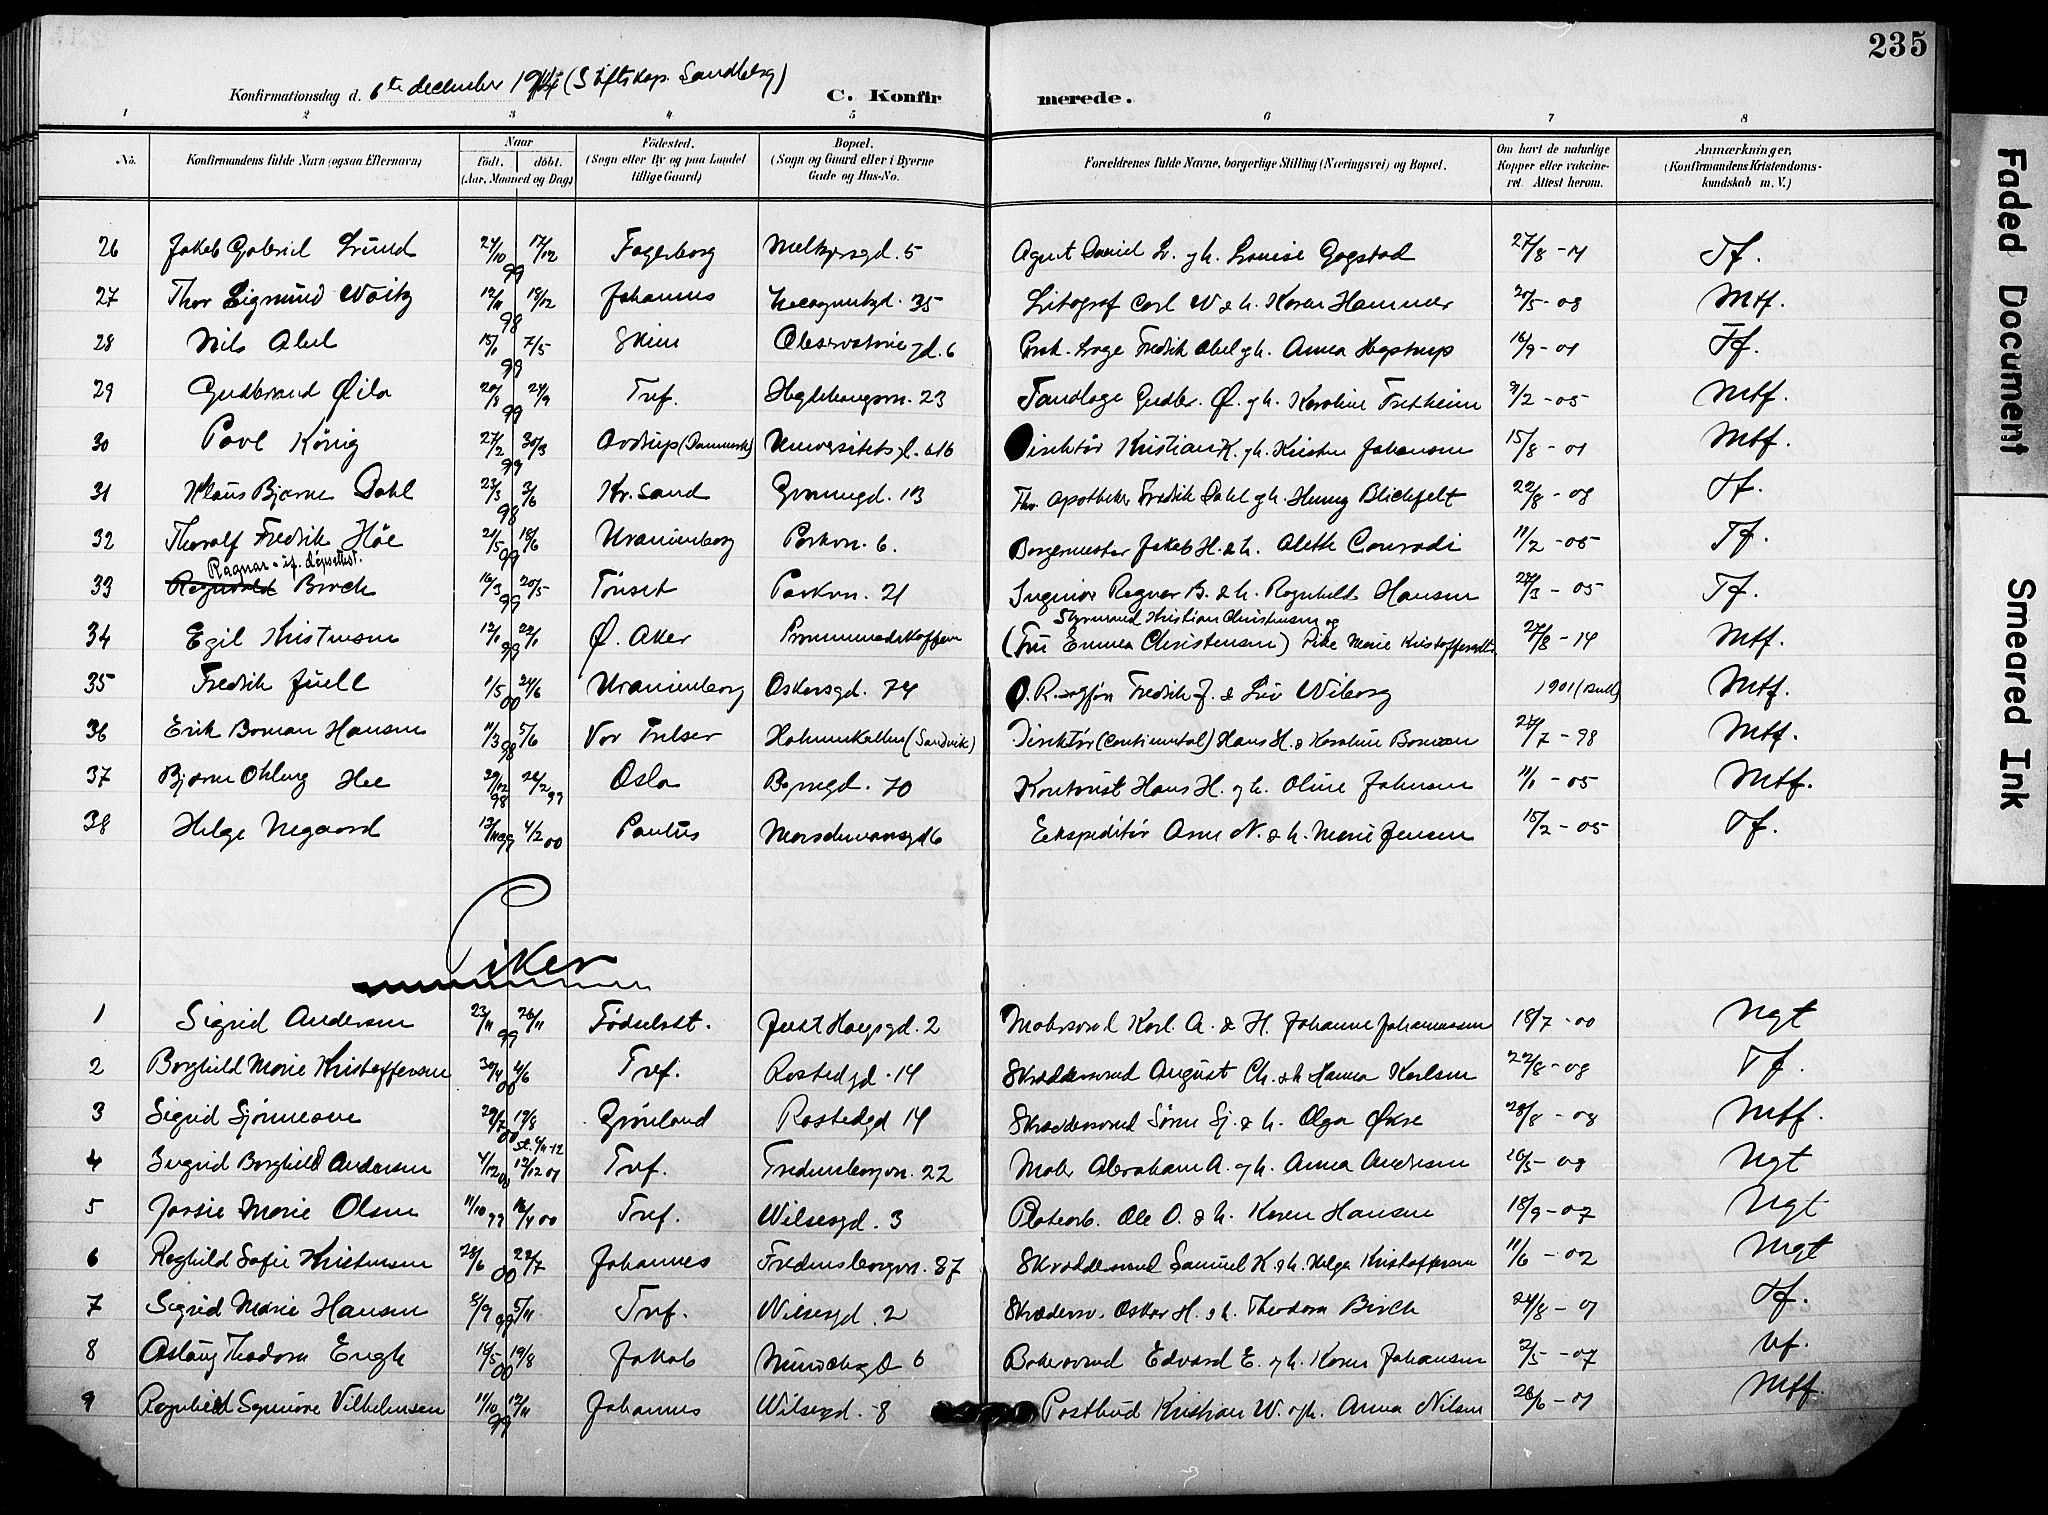 235
Konfirmationsdag d. 6te december 1914 (Stiftskap. Sandberg)
C. Konfirmerede.
1 2 3 4 5 6 7 8
No. Konfirmandens fulde Navn (ogsaa Efternavn) Naar født. døbt. (Aar, Maaned og Dag) Fødested. (Sogn eller By og paa Landet tillige Gaard) Bopæl. (Sogn og Gaard eller i Byerne Gade og Hus-No. Forældrenes fulde Navne, borgerlige Stilling (Næringsvei) og Bopæl. Om havt de naturlige Kopper eller vakcineret. Attest herom. Anmærkninger, (Konfirmandens Kristendomskundskab m. V.)
26 Jakob Gabriel Lund 24/10 99 17/12 Fagerborg Meltzersgd. 5 Agent Daniel L. og h. Louise Gogstad 27/8 - 14 Tf.
27 Thor Sigmund Woitz 12/11 98 18/12 Johannes 35 Litograf Carl W & h. Karen Hammer 20/5 - 08 Mtf.
28 Nils Abel 15/1 99 7/5 Skien Observatorie gd. 6 Fredrik Abel og h. Anna Hegstrup 16/9 - 01 Tf.
29 Gudbrand Øila 20/8 99 24/9 Tref. Hegdehaugsvn. 23 Tandlæge Gudbr. Ø. og h. Karoline Fretheim 9/2 - 05 Mtf.
30 Povl König 27/2 99 30/3 (Danmark) Universitetsgd. 16 Direktør Kristian K. og h. Kirsten Johansen 15/8 - 01 Mtf.
31 Klaus Bjarne Dahl 23/3 98 3/6 Kr.sand Grønnegd. 13 Apotheker Fredrik Dahl og h. Henny Blichfelt 22/8 - 08 Tf.
32 Thoralf Fredrik Höe 21/5 99 18/6 Uranienborg Parkvn. 6. Borgermester Jakob H. & h. Alette Conradi 11/2 - 05 Tf.
Ragnar - if. døpsattest.
33 Ragnvald Birch 16/3 99 20/5 Tönset Parkvn. 21 Ingeniør Ragnar B. & h. Ragnhild Hansen 27/3 - 05 Tf.
Styrmand Kristian Christensen og
34 Egil Kristensen 12/1 99 22/1 Ø. Aker (Fru Emma Christensen) Pike Marie Kristoffersdtr. 27/8 - 14 Mtf.
35 Fredrik Juell 1/5 00 24/6 Uranienborg Oskarsgd. 74 O. R. sagfør Fredrik J. & Wiborg 1901 Mtf.
36 Erik Boman Hansen 11/3 98 5/6 Vor Frelser Holmenkollen (Sandvik) Direktør (Continental) Hans H. & Karoline Boman 27/7 - 98 Mtf.
37 Bjarne Ohlberg Hee 29/12 98 26/2 99 Oslo Bognegd. 70 Kontorist Hans H. og h. Oline Johnsen 11/1 - 05 Mtf.
38 Helge Negaard 13/11 99 4/2 00 Paulus Marschmannsgd 6 Ekspeditør Arne N. & h. Marie Jensen 15/2 - 05 Tf.
Piker
1 Sigrid Andersen 23/11 99 26/11 Fødselsst. Just Haagsgd. 2 Malersvend Karl. A. & H. Johanne Johannessen 18/7 - 00 Ngt
2 Borghild Marie Kristoffersen 30/4 00 4/6 Tref. Rostedgd. 14 Skræddersvend August Ch. & h Hanna Karlsen 22/8 - 08 Tf.
3 Sigrid Sjönnesen 29/7 00 19/8 Grönland Rostedgd 14 Skræddersvend Sören Sj. & h. Olga Økse 28/8 - 08 Mtf.
4 Ingrid Borghild Andersen 4/12 00 12/12 01 Tref. Fredensborgvn. 22 Maler Abraham A. og h. Anna Andersen 26/5 - 08 Ngt
5 Jossie Marie Olsen 11/10 99 16/4 00 Tref. Wilsesgd. 3 Platearb. Ole O. & h. Karen Hansen 18/9 - 07 Ngt
6 Ragnhild Sofie Kristensen 28/6 00 22/7 Johannes Fredensborgvn. 87 Skræddersvend Samuel K. & h. Helga Kristoffersen 11/6 - 02 Mgt
7 Sigrid Marie Hansen 8/9 99 5/11 Tref. Wilsesgd. 2 Skrædersv. Oskar H. & h. Theodora Birch 24/8 - 01 Tf.
8 Aslaug Theodora Engh 18/5 00 19/8 Jakob 6 Bakersvend Edvard E. og h. Karen Johansen 2/5 - 07 Vf.
9 Ragnhild Synnöve Vilhelmsen 11/10 99 12/11 Johannes Wilsesgd. 8 Postbud Kristian W. og h. Anna Nilsen 26/6 - 01 Mtf.
Faded Document
Smeared Ink